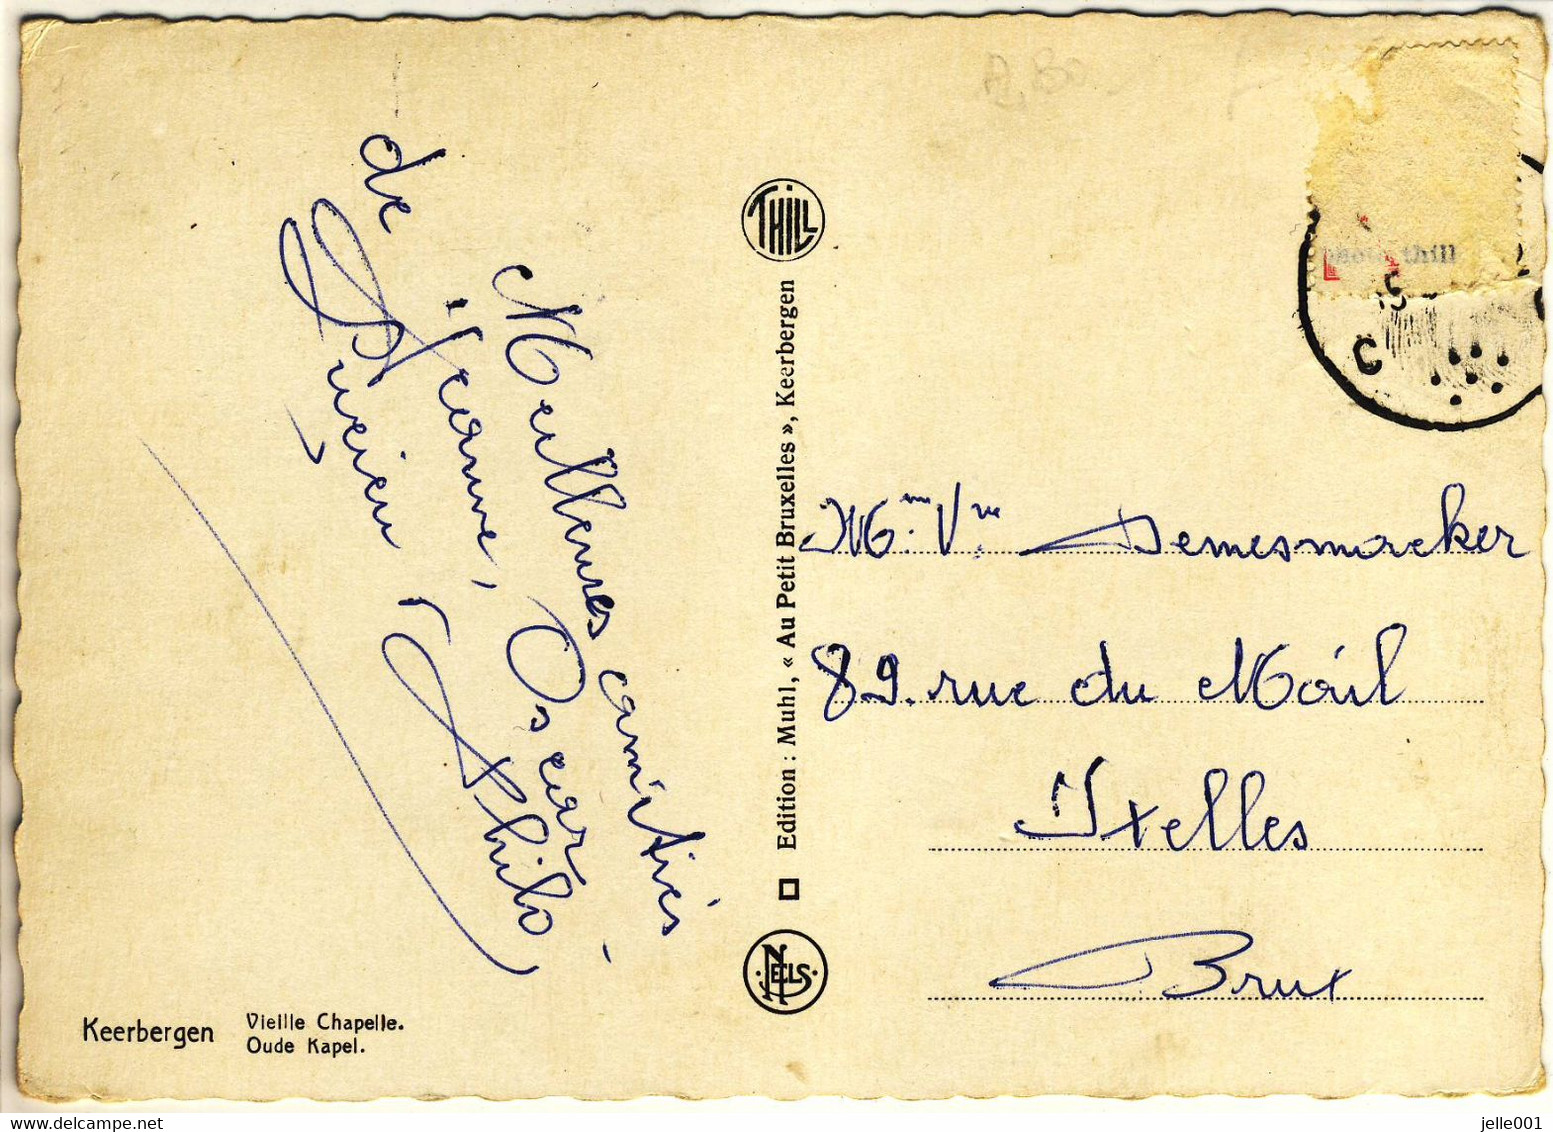 A,80
Meilleures amitiés
de Jeanne, Oscar
, Philo
THILL
Edition : Muhl, « Au Petit Bruxelles », Keerbergen
NELS
photo thill
C
Mme. Vve Demesmaeker
89. rue du Mail
Ixelles
Brux
Keerbergen
Vieille Chapelle.
Oude Kapel.
jelle001